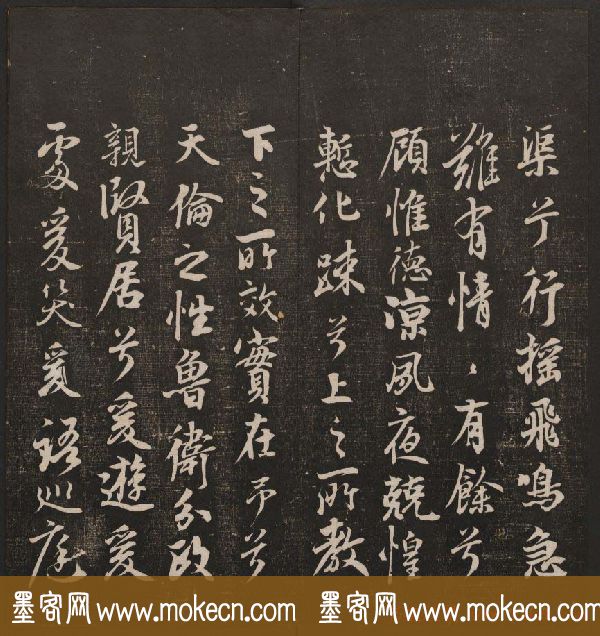 渠兮行摇飛鳴急
難有情〻有餘兮
顧惟德凉夙夜兢惶
慙化踈兮上之所教
下之所效實在予兮
天倫之性魯衛分政
親賢居兮爰遊爰
處爰笑爰語巡庭
墨客网 www.mokecn.com 墨客网 www.mokecn.com